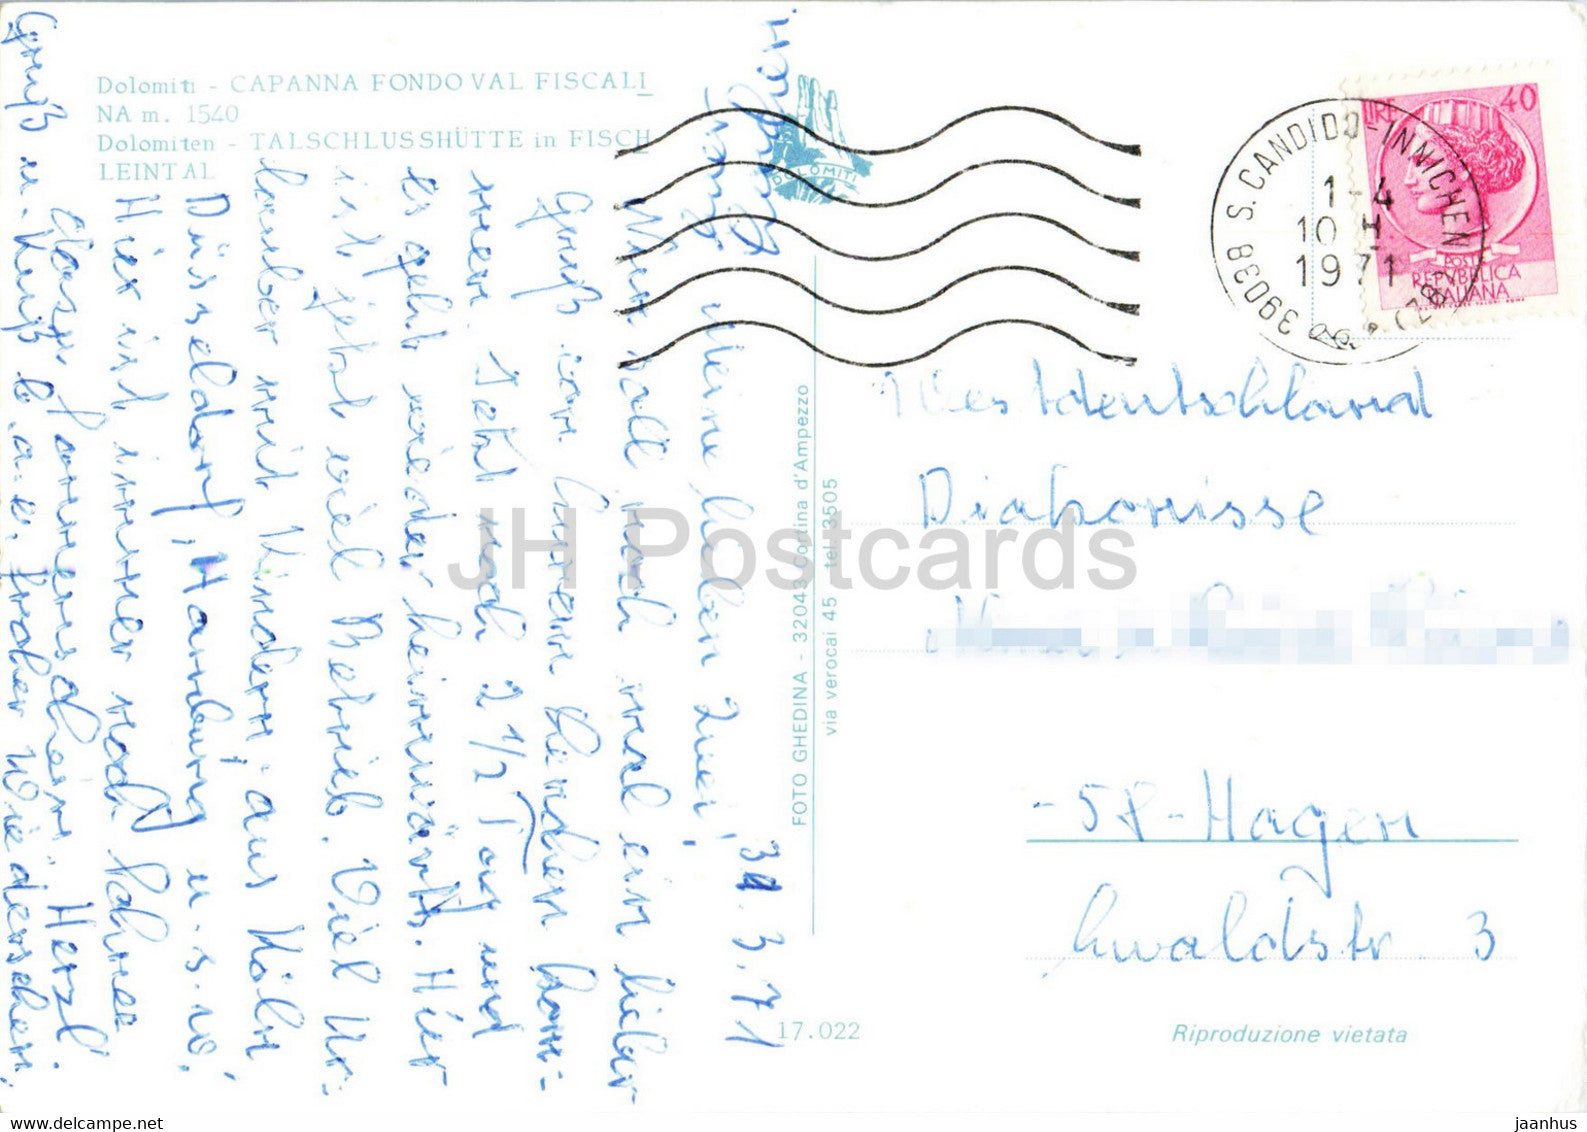 Dolomiti - CAPANNA FONDO VAL FISCALI
NA m. 1540
Dolomiten - TALSCHLUSSHÜTTE in FISCH
LEINTAL
DOLOMITI
S. CANDIDO-INNICHEN
1-4
10 H
1971
39038
(BZ)
LIRE 40
POSTE
REPVBBLICA
ITALIANA
31.3.71
Meine lieben Zwei!
Nun soll noch mal ein lieber
Gruß von Euren kom-
men. Jetzt noch 2 1/2 Tag und
es geht wieder heimwärts. Hier
ist jetzt viel Betrieb. Viel Ur-
lauber mit Kindern aus Köln
Düsseldorf, Hamburg u.s.w.
Hier ist immer noch Schnee
dazu Sonnenschein. Herzl.
Gruß u. Kuß b. a. e. frohes Wiedersehen,
FOTO GHEDINA - 32043 Cortina d'Ampezzo
via verocai 45 tel. 3505
Westdeutschland
Diakonisse
-58-Hagen
3
17.022
Riproduzione vietata
JH Postcards
www.delcampe.net
jaanhus